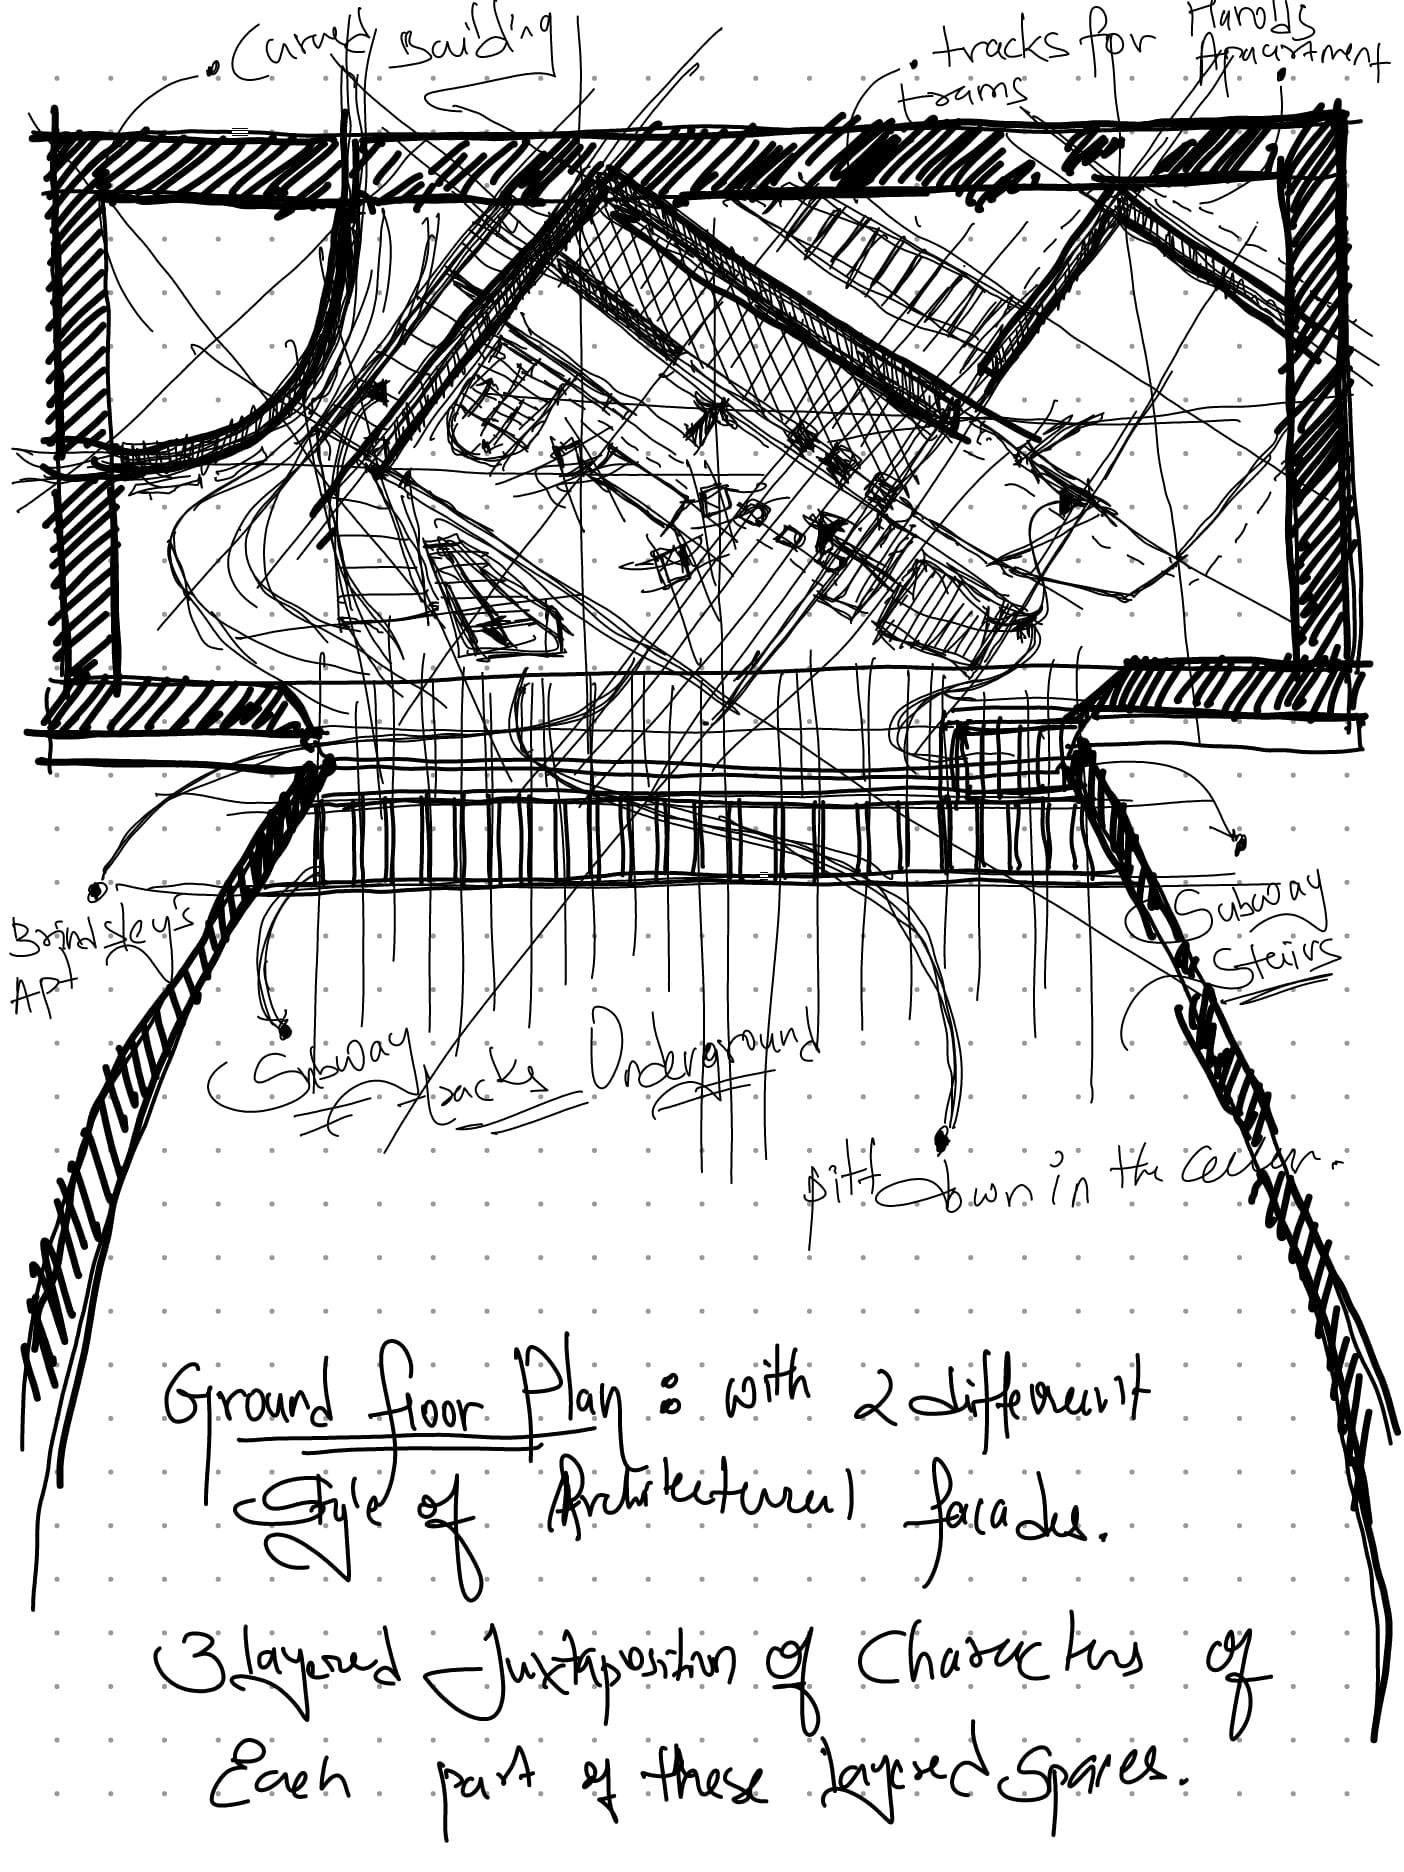 Curved Building
tracks for
trams
Harolds
Apaartment
Brindsley's
Apt
Subway
Stairs
Subway
tracks Underground
pitt down in the
Ground floor Plan : with 2 different
Style of Architectural facades.
3 layered Juxtaposition of Characters of
Each part of these layered Spaces.